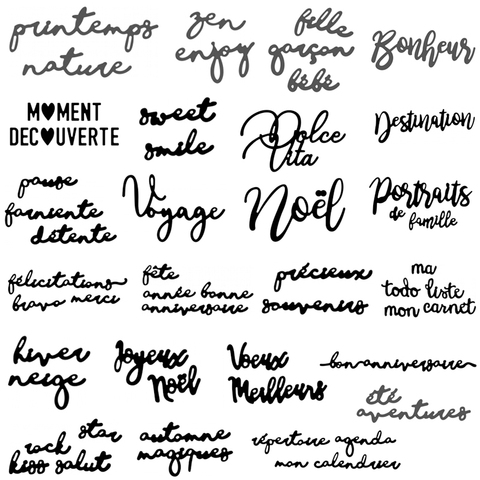 printemps
nature
zen
enjoy
fille
garçon
bébé
Bonheur
M♥MENT
DEC♥UVERTE
sweet
smile
Dolce
Vita
Destination
pause
farniente
détente
Voyage
Noël
Portraits
de famille
félicitations
bravo merci
fête
année bonne
anniversaire
précieux
souvenirs
ma
todo liste
mon carnet
hiver
neige
Joyeux
Noël
Voeux
Meilleurs
bon anniversaire
été
aventures
star
rock
kiss salut
automne
magiques
répertoire agenda
mon calendrier